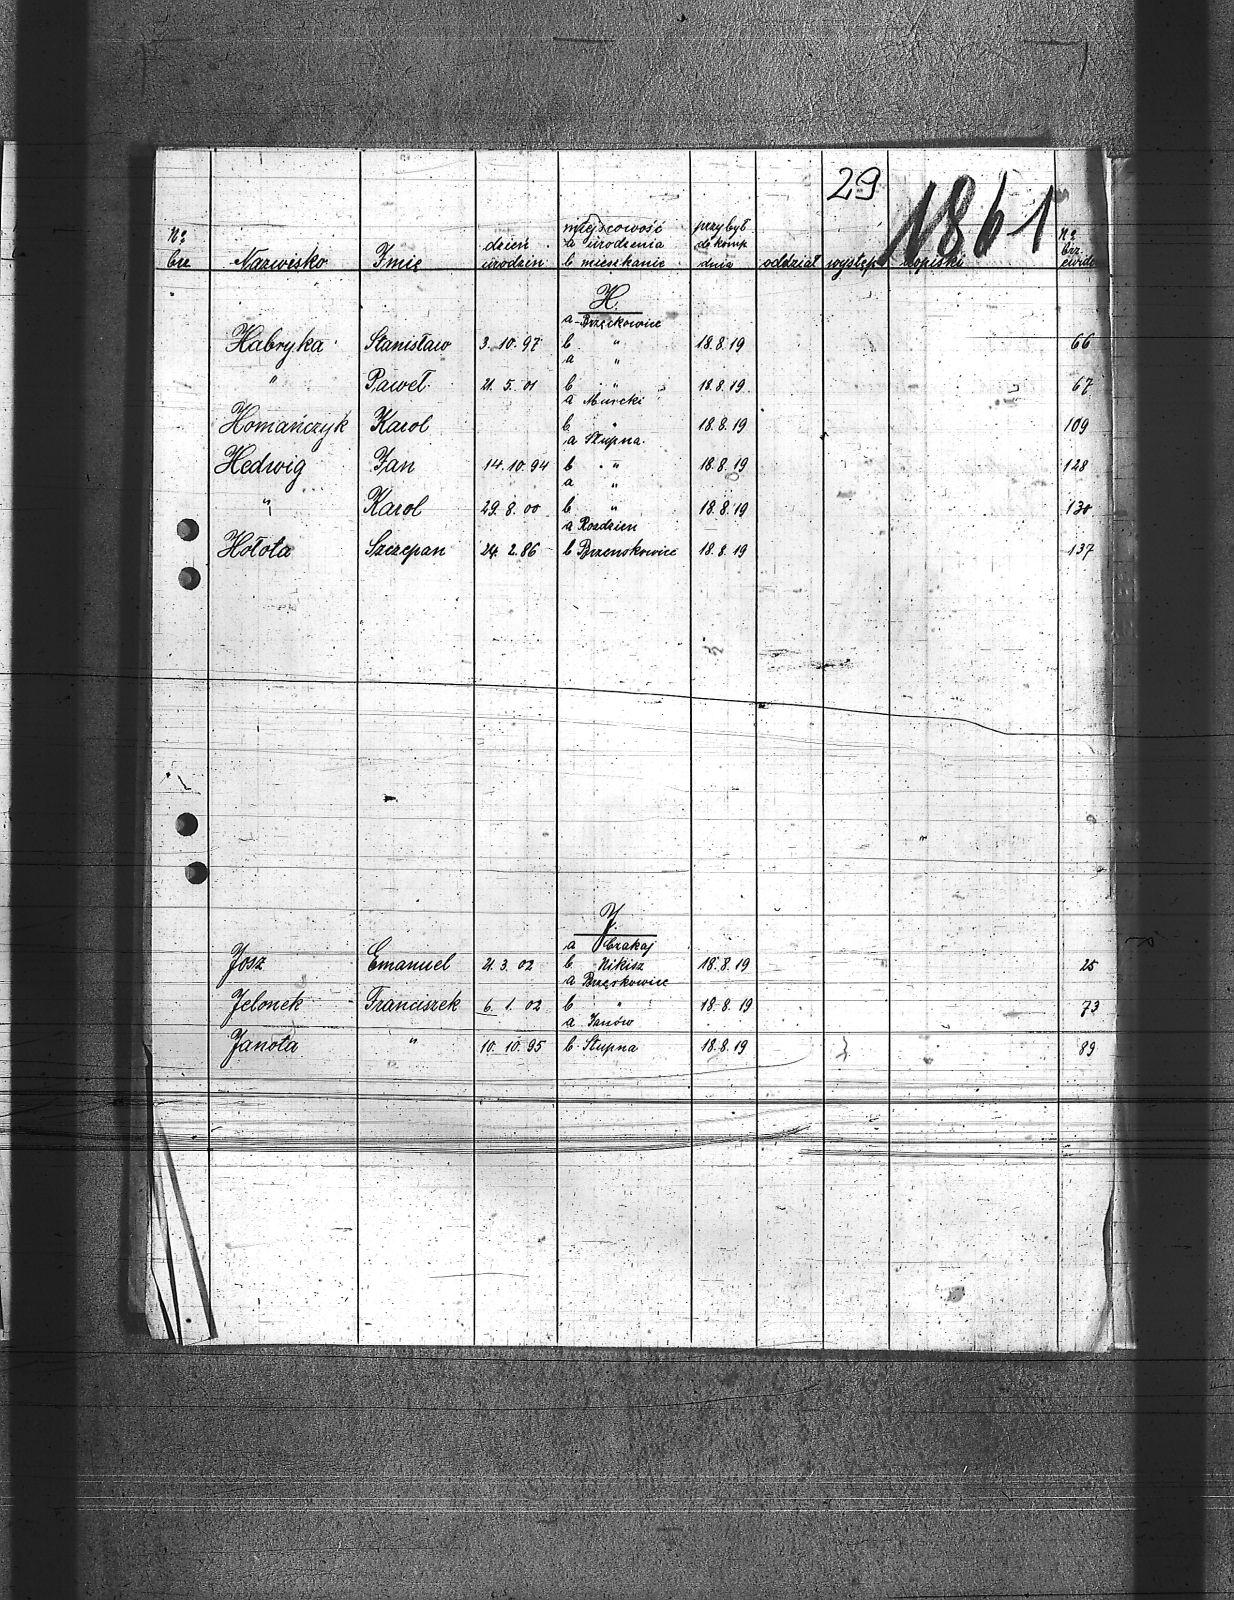 29 1861
miejscowość przybył
No dzień a urodzenia do komp No
bie Nazwisko Imię urodzin b mieszkanie dnia oddział występ. dopiski
H.
a Brzęckowice
Habryka Stanisław 3.10.97 b " 18.8.19 66
a "
" Paweł 21.5.01 b " 18.8.19 67
a Murcki
Homańczyk Karol b " 18.8.19 109
a Słupna.
Hedwig Jan 14.10.94 b " 18.8.19 128
a "
" Karol 29.8.00 b " 18.8.19 130
a Rozdzien
Hołota Szczepan 24.2.86 b Brzenskowice 18.8.19 137
J.
a Czakaj
Josz Emanuel 21.3.02 b Nikisz 18.8.19 25
a Brzęskowice
Jelonek Franciszek 6.1.02 b " 18.8.19 73
a Janów
Janota " 10.10.95 b Słupna 18.8.19 89